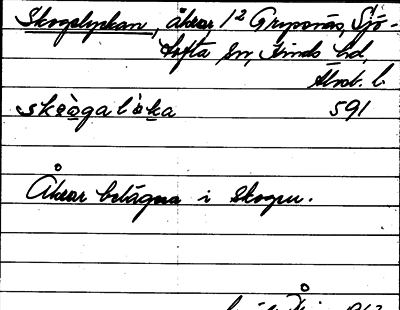 Skogslyckan, åkrar, 1² Grypsnäs, Sjö-
tofta sn, Kinds hd,
Älvsb. l.
skòogalỳka 591
Åkrar belägna i skogen.